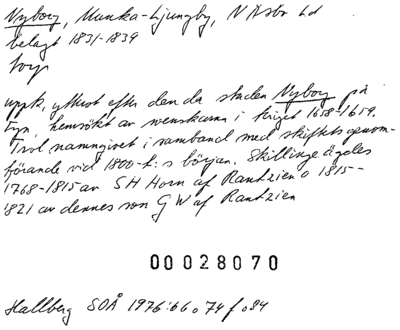 Nyborg, Munka-Ljungby, N Åsbo hd
belagt 1831-1839
torp
uppk. ytterst efter den da staden Nyborg på
Fyn, hemsökt av svenskarna i kriget 1658-1659.
Trol namngivet i samband med skiftets genom-
förande vid 1800-t:s början. Skillinge ägdes
1768-1815 av S H Horn af Rantzien o 1815-
1821 av dennes son G W af Rantzien
00028070
Hallberg SOÅ 1976:66 o 74 f o 84